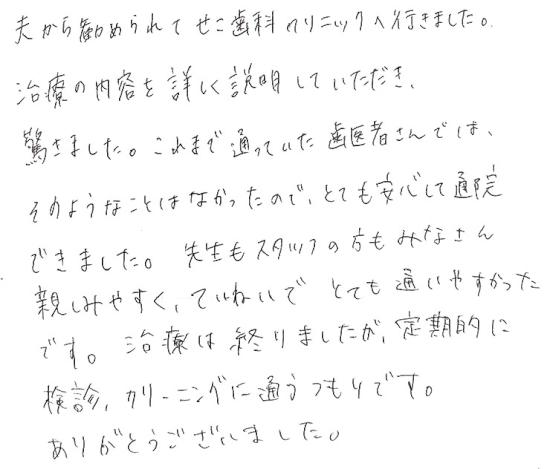 夫から勧められてせこ歯科クリニックへ行きました。
治療の内容を詳しく説明していただき、
驚きました。これまで通っていた歯医者さんでは、
そのようなことはなかったので、とても安心して通院
できました。先生もスタッフの方もみなさん
親しみやすく、ていねいでとても通いやすかった
です。治療は終りましたが、定期的に
検診、クリーニングに通うつもりです。
ありがとうございました。